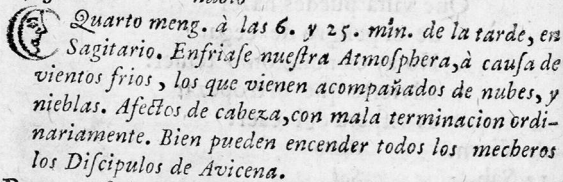 Quarto meng. à las 6. y 25. min. de la tarde, en
Sagitario. Enfriase nuestra Atmosphera, à causa de
vientos frios, los que vienen acompañados de nubes, y
nieblas. Afectos de cabeza, con mala terminacion ordi-
nariamente. Bien pueden encender todos los mecheros
los Discipulos de Avicena.